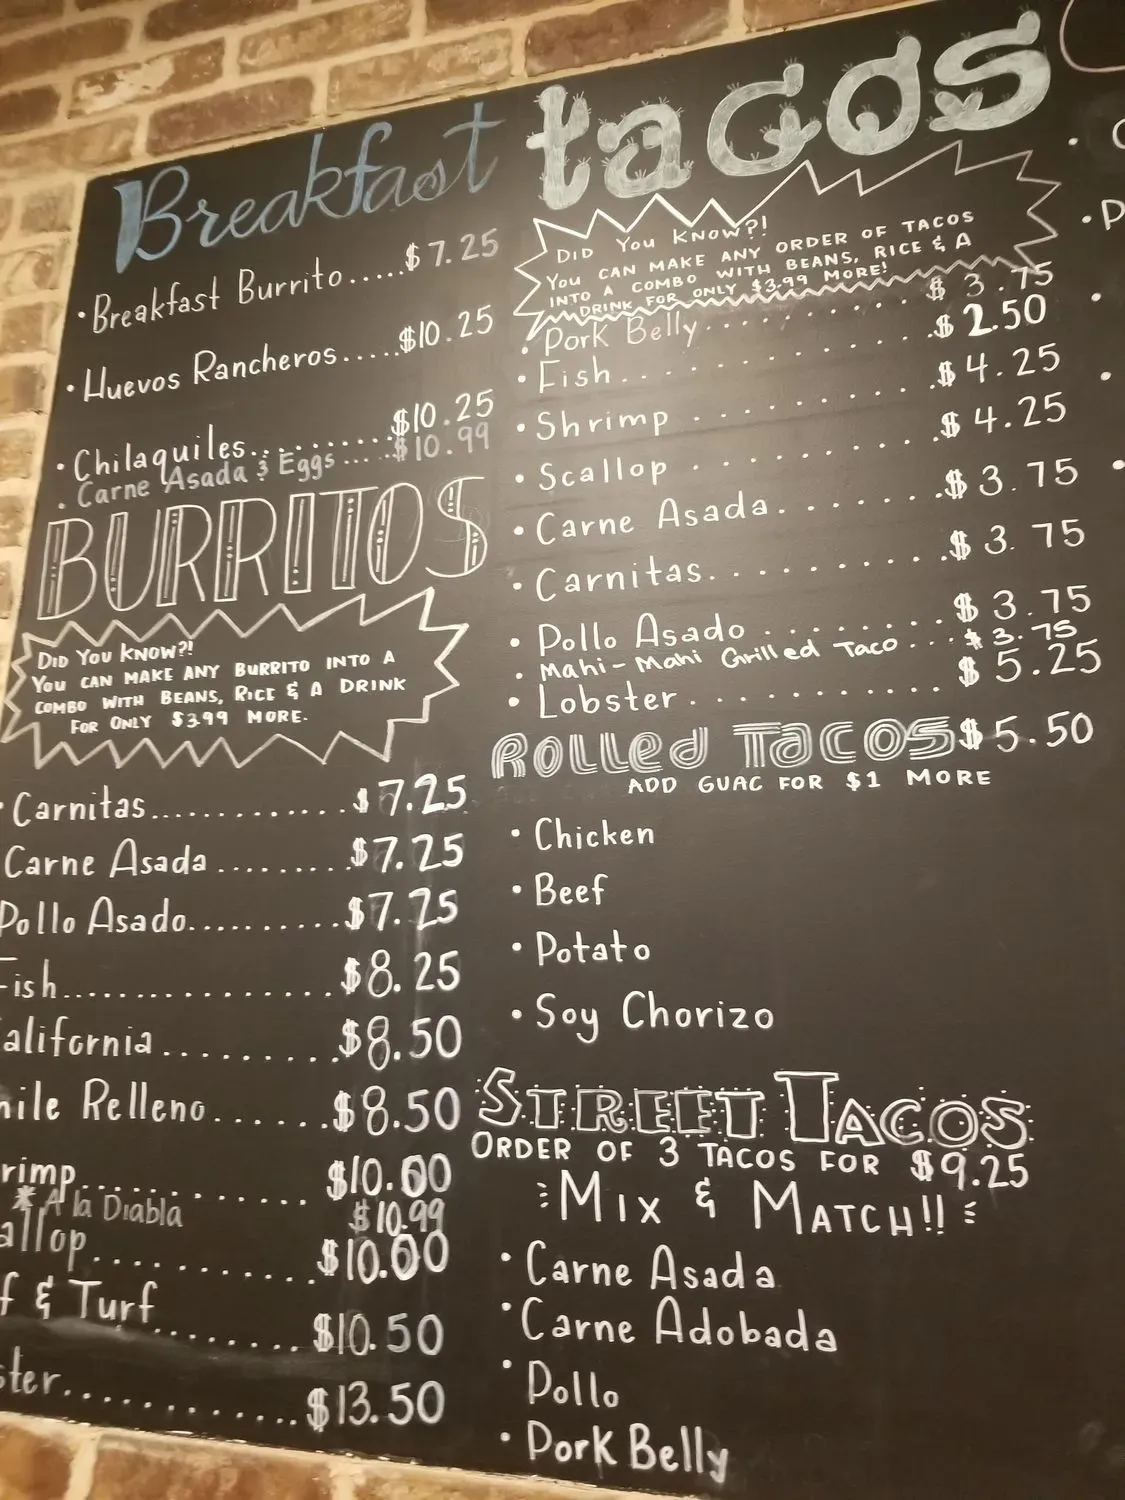 Breakfast
• Breakfast Burrito.....$7.25
• Huevos Rancheros.....$10.25
• Chilaquiles.........$10.25
• Carne Asada & Eggs.....$10.99
BURRITOS
DID YOU KNOW?!
YOU CAN MAKE ANY BURRITO INTO A
COMBO WITH BEANS, RICE & A DRINK
FOR ONLY $3.99 MORE.
• Carnitas.............$7.25
Carne Asada.........$7.25
Pollo Asado..........$7.25
Fish................$8.25
alifornia..........$8.50
hile Relleno......$8.50
rimp............$10.00
* A la Diabla $10.99
allop............$10.00
f & Turf.........$10.50
ster.............$13.50
tacos
DID YOU KNOW?!
YOU CAN MAKE ANY ORDER OF TACOS
INTO A COMBO WITH BEANS, RICE & A
DRINK FOR ONLY $3.99 MORE!
• Pork Belly..........$3.75
• Fish..............$2.50
• Shrimp...........$4.25
• Scallop..........$4.25
• Carne Asada.......$3.75
• Carnitas..........$3.75
• Pollo Asado........$3.75
• Mahi-Mahi Grilled Taco...$3.75
• Lobster..........$5.25
Rolled Tacos $5.50
ADD GUAC FOR $1 MORE
• Chicken
• Beef
• Potato
• Soy Chorizo
STREET TACOS
ORDER OF 3 TACOS FOR $9.25
MIX & MATCH!!
• Carne Asada
• Carne Adobada
• Pollo
• Pork Belly